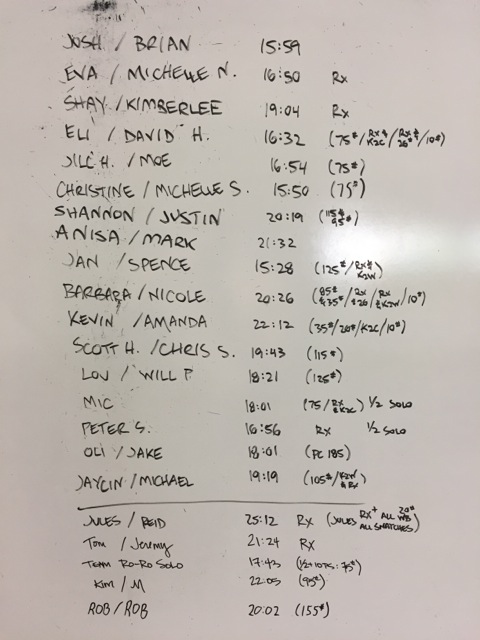 JOSH / BRIAN 15:59
EVA / MICHELLE N. 16:50 Rx
SHAY / KIMBERLEE 19:04 Rx
ELI / DAVID H. 16:32 (75# / Rx & K2C / Rx & 20# / 10#)
JILL H. / MOE 16:54 (75#)
CHRISTINE / MICHELLE S. 15:50 (75#)
SHANNON / JUSTIN 20:19 (115 & 95#)
ANISA / MARK 21:32
JAN / SPENCE 15:28 (125# / Rx & K2W)
BARBARA / NICOLE 20:26 (85# & 35# / Rx & 20 / Rx & K2W / 10#)
KEVIN / AMANDA 22:12 (35# / 20# / K2C / 10#)
SCOTT H. / CHRIS S. 19:43 (115#)
LOU / WILL P. 18:21 (125#)
MIC 18:01 (75 / Rx & K2C) 1/2 SOLO
PETER S. 16:56 Rx 1/2 SOLO
OLI / JAKE 18:01 (PC 185)
JAYCIN / MICHAEL 19:19 (105# / K2W & Rx)
JULES / REID 25:12 Rx (JULES RX+ ALL 20# WB ALL SNATCHES)
Tom / Jeremy 21:24 Rx
TEAM RO-RO SOLO 17:43
Kim / M 22:05 (95#)
ROB / ROB 20:02 (155#)